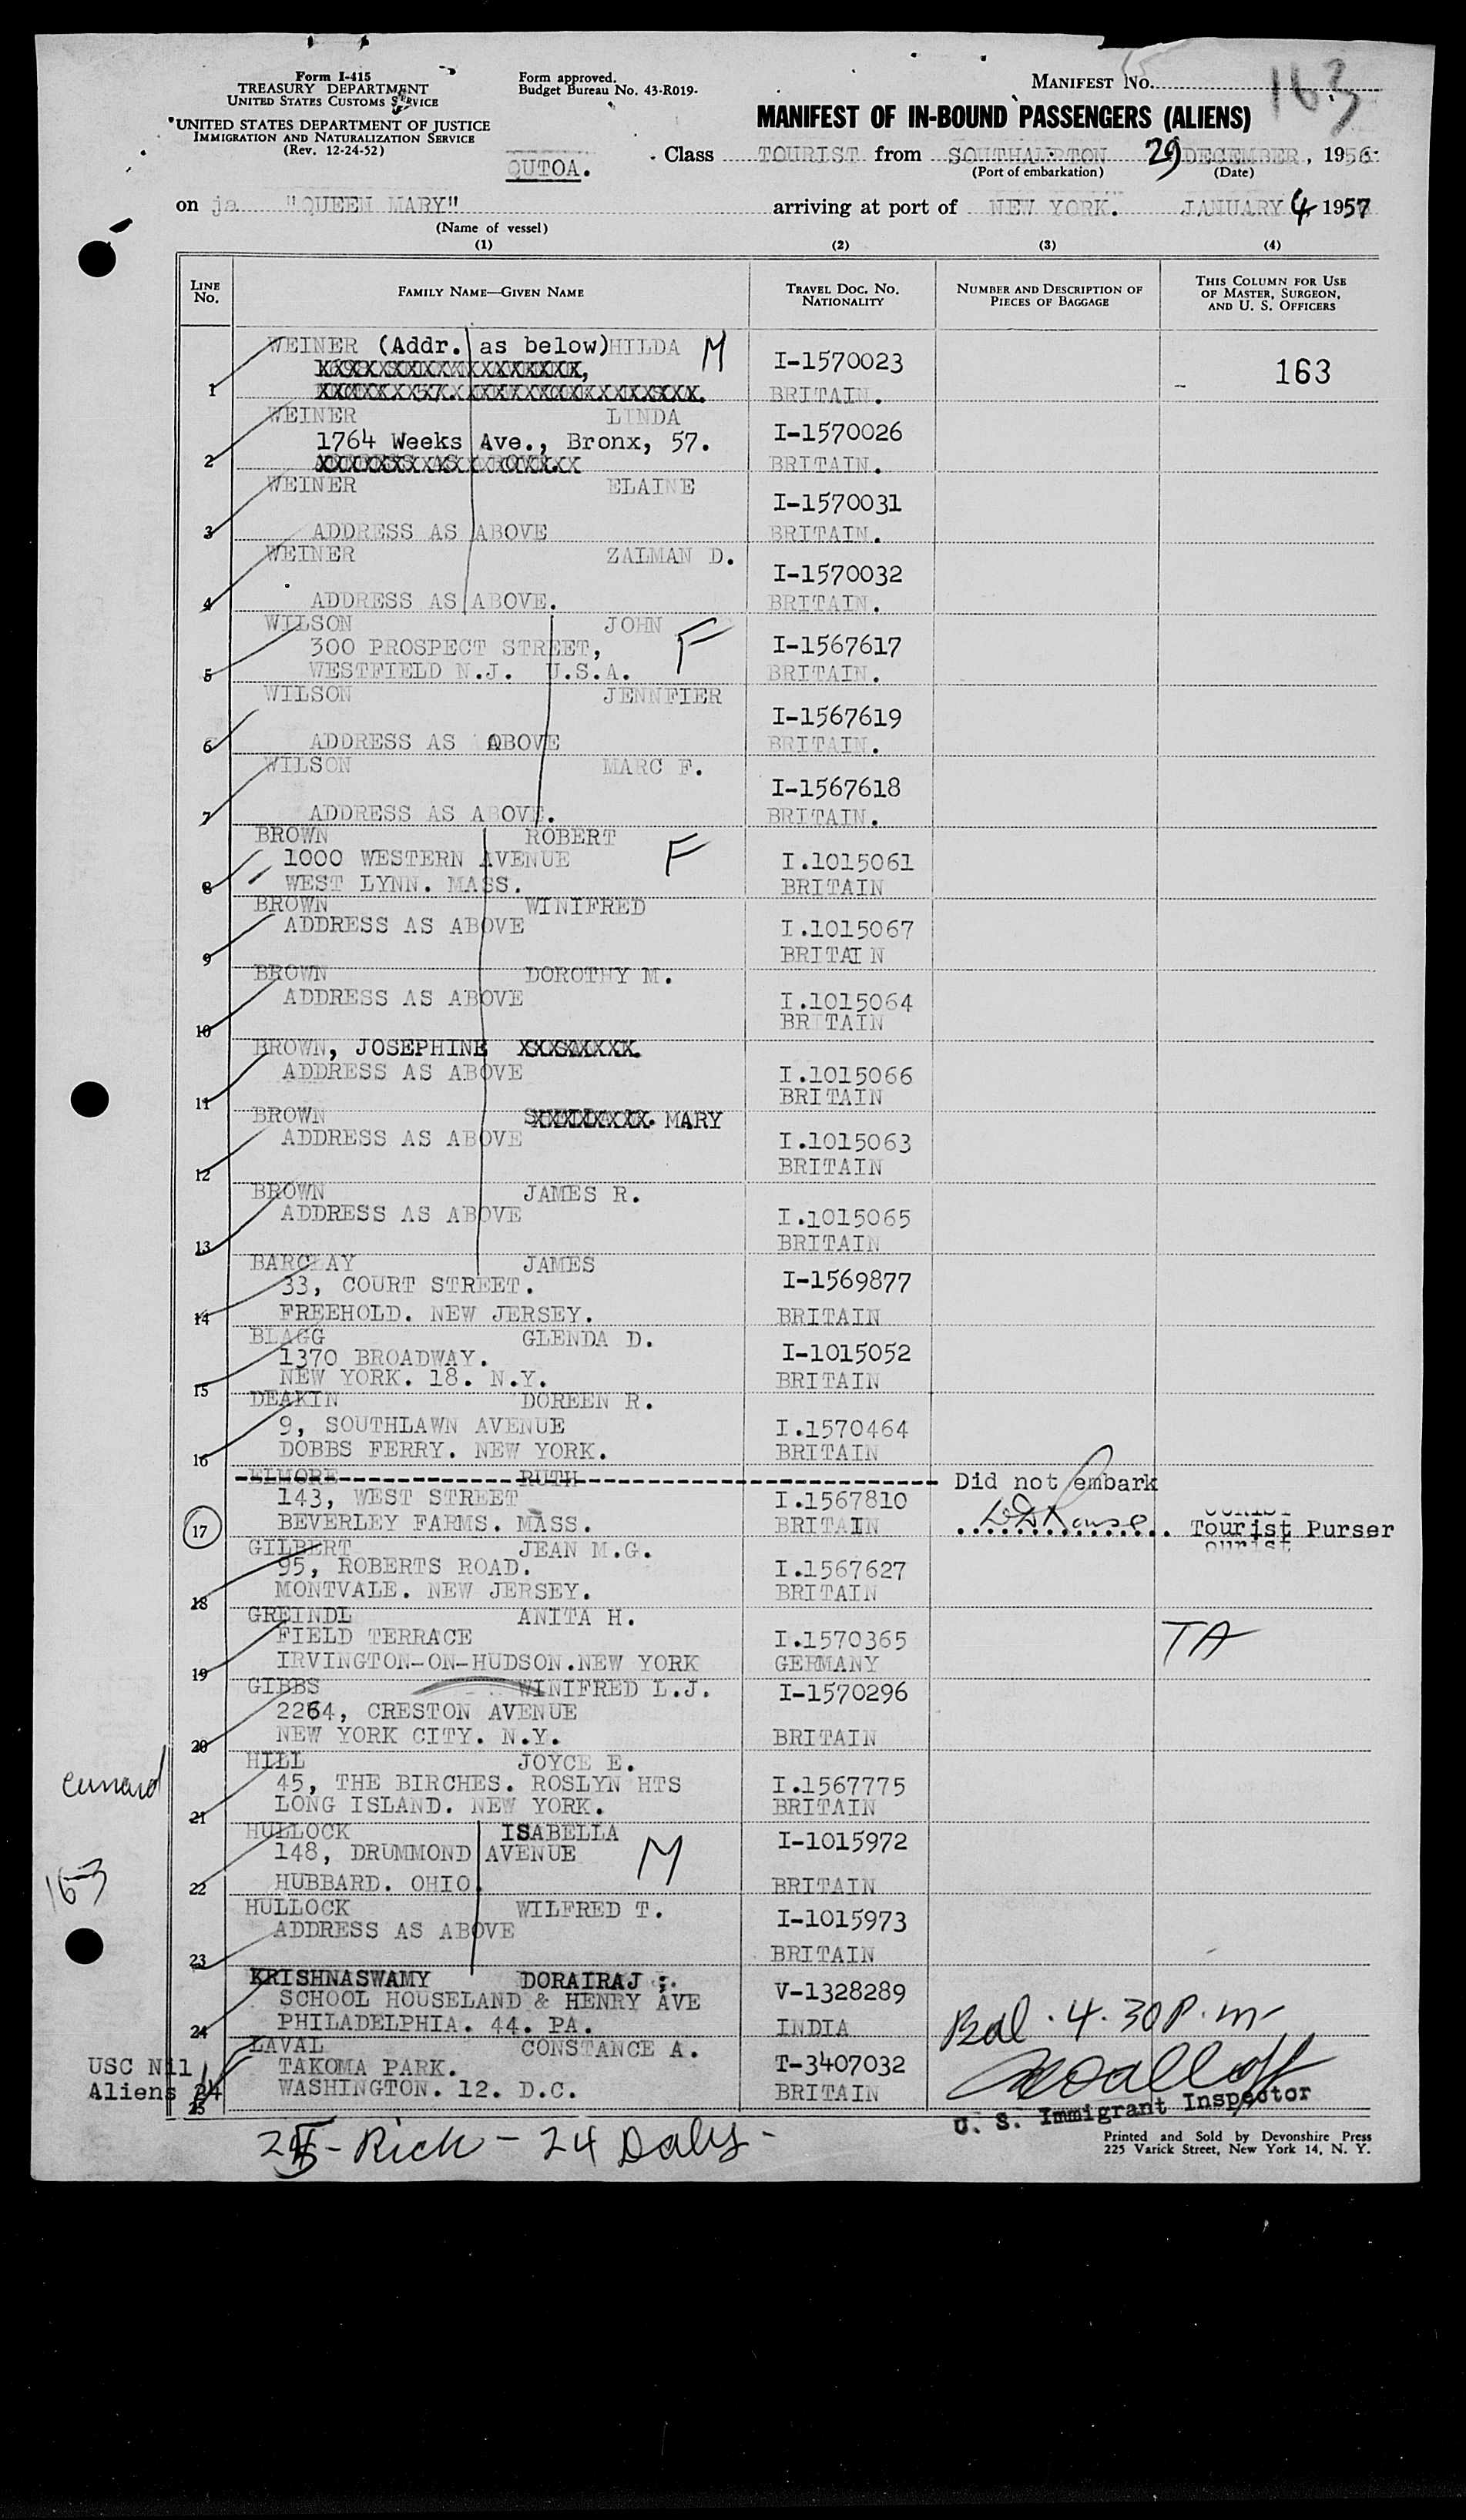 Form I-415
TREASURY DEPARTMENT
UNITED STATES CUSTOMS SERVICE
UNITED STATES DEPARTMENT OF JUSTICE
IMMIGRATION AND NATURALIZATION SERVICE
(Rev. 12-24-52)
Form approved.
Budget Bureau No. 43-R019.
MANIFEST NO. 163
MANIFEST OF IN-BOUND PASSENGERS (ALIENS)
OUTOA. Class TOURIST from SOUTHAMPTON 29 DECEMBER, 1956
(Port of embarkation) (Date)
on ja "QUEEN MARY" arriving at port of NEW YORK. JANUARY 4 1957
(Name of vessel)
(1) (2) (3) (4)
LINE NO. FAMILY NAME—GIVEN NAME TRAVEL DOC. NO. NATIONALITY NUMBER AND DESCRIPTION OF PIECES OF BAGGAGE THIS COLUMN FOR USE OF MASTER, SURGEON, AND U. S. OFFICERS
WEINER (Addr. as below) HILDA M I-1570023 163
1 BRITAIN.
WEINER LINDA
1764 Weeks Ave., Bronx, 57. I-1570026
2 BRITAIN.
WEINER ELAINE
I-1570031
3 ADDRESS AS ABOVE BRITAIN.
WEINER ZALMAN D.
I-1570032
4 ADDRESS AS ABOVE. BRITAIN.
WILSON JOHN F
300 PROSPECT STREET, I-1567617
5 WESTFIELD N.J. U.S.A. BRITAIN.
WILSON JENNFIER
I-1567619
6 ADDRESS AS ABOVE BRITAIN.
WILSON MARC F.
I-1567618
7 ADDRESS AS ABOVE. BRITAIN.
BROWN ROBERT F
1000 WESTERN AVENUE I.1015061
8 WEST LYNN. MASS. BRITAIN
BROWN WINIFRED
ADDRESS AS ABOVE I.1015067
9 BRITAIN
BROWN DOROTHY M.
ADDRESS AS ABOVE I.1015064
10 BRITAIN
BROWN, JOSEPHINE
ADDRESS AS ABOVE I.1015066
11 BRITAIN
BROWN MARY
ADDRESS AS ABOVE I.1015063
12 BRITAIN
BROWN JAMES R.
ADDRESS AS ABOVE I.1015065
13 BRITAIN
BARCLAY JAMES
33, COURT STREET. I-1569877
14 FREEHOLD. NEW JERSEY. BRITAIN
BLAGG GLENDA D.
1370 BROADWAY. I-1015052
15 NEW YORK. 18. N.Y. BRITAIN
DEAKIN DOREEN R.
9, SOUTHLAWN AVENUE I.1570464
16 DOBBS FERRY. NEW YORK. BRITAIN
ELMORE RUTH Did not embark
143, WEST STREET I.1567810
17 BEVERLEY FARMS. MASS. BRITAIN Tourist Purser
GILBERT JEAN M.G.
95, ROBERTS ROAD. I.1567627
18 MONTVALE. NEW JERSEY. BRITAIN
GREINDL ANITA H.
FIELD TERRACE I.1570365 TA
19 IRVINGTON-ON-HUDSON.NEW YORK GERMANY
GIBBS WINIFRED L.J. I-1570296
2264, CRESTON AVENUE
20 NEW YORK CITY. N.Y. BRITAIN
HILL JOYCE E.
cunard 45, THE BIRCHES. ROSLYN HTS I.1567775
21 LONG ISLAND. NEW YORK. BRITAIN
HULLOCK ISABELLA M I-1015972
148, DRUMMOND AVENUE
163 22 HUBBARD. OHIO. BRITAIN
HULLOCK WILFRED T. I-1015973
ADDRESS AS ABOVE
23 BRITAIN
KRISHNASWAMY DORAIRAJ ;. V-1328289
SCHOOL HOUSELAND & HENRY AVE
24 PHILADELPHIA. 44. PA. INDIA Bal. 4.30 P.m
LAVAL CONSTANCE A.
USC Nil TAKOMA PARK. T-3407032
Aliens 24 WASHINGTON. 12. D.C. BRITAIN
25
U. S. Immigrant Inspector
Rich - 24 Daly -
Printed and Sold by Devonshire Press
225 Varick Street, New York 14, N. Y.